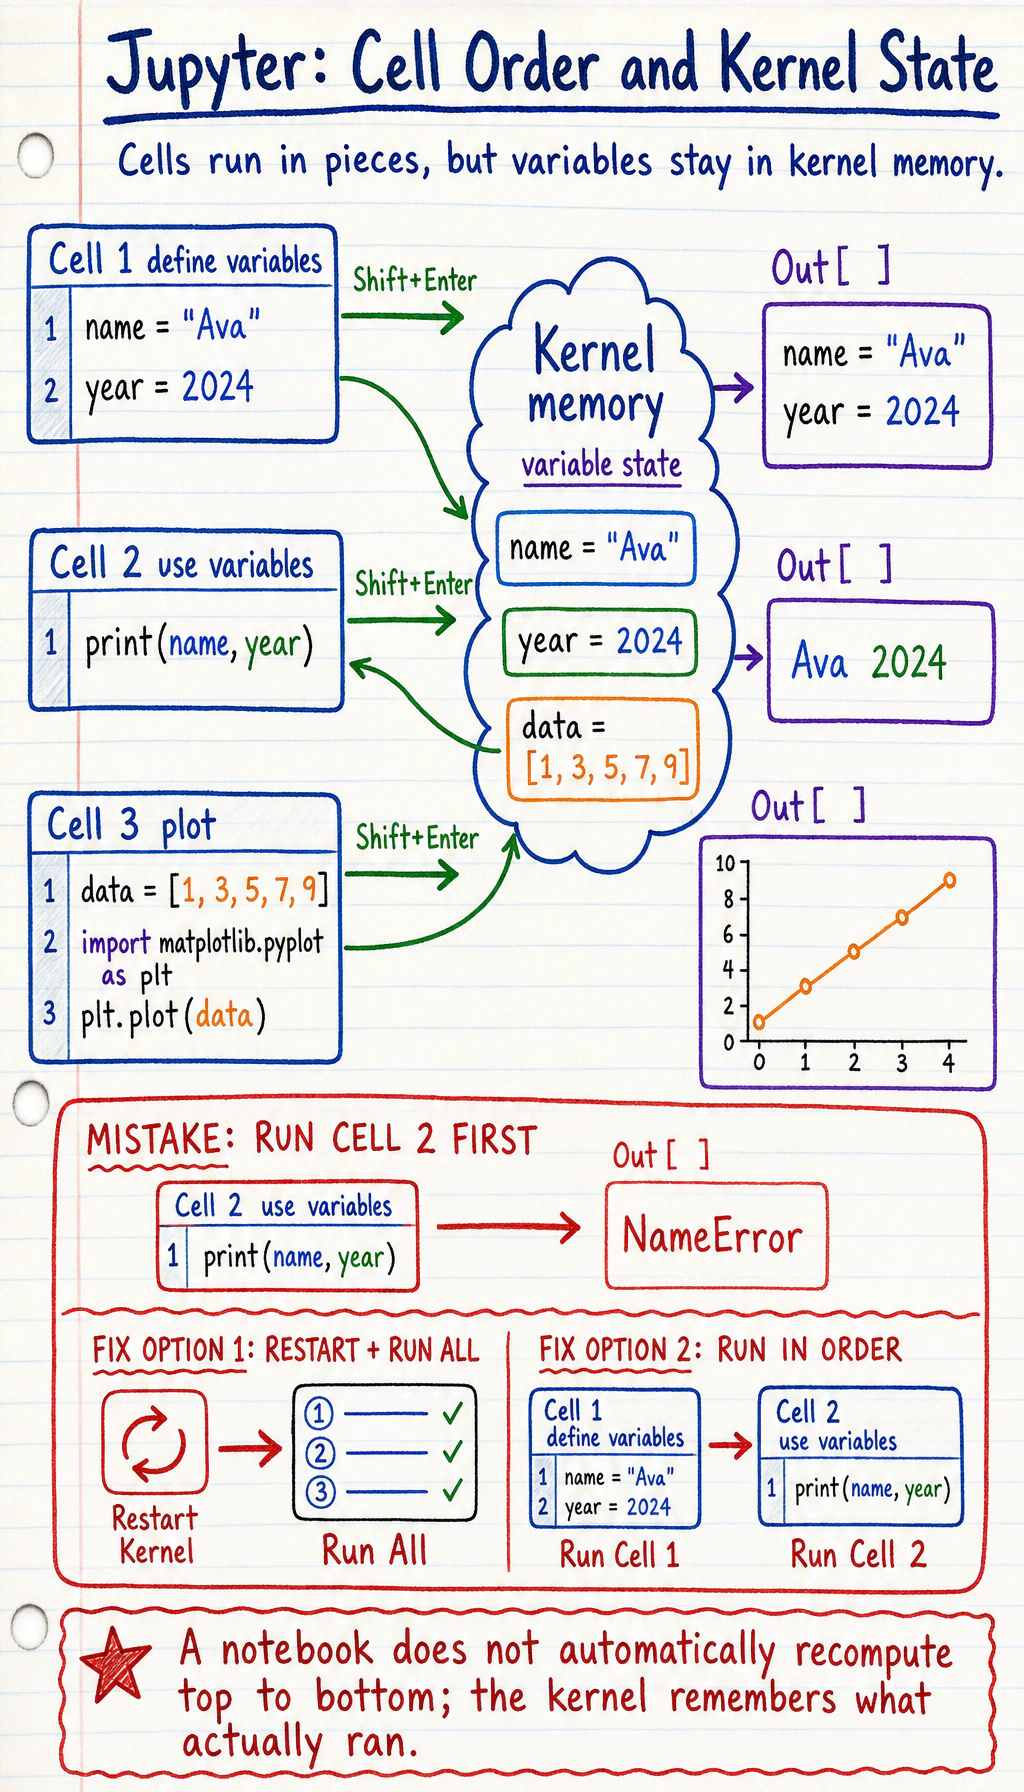 Jupyter: Cell Order and Kernel State
Cells run in pieces, but variables stay in kernel memory.
Cell 1 define variables
1 name = "Ava"
2 year = 2024
Shift+Enter
Kernel
memory
variable state
name = "Ava"
year = 2024
data =
[1, 3, 5, 7, 9]
Out[ ]
name = "Ava"
year = 2024
Cell 2 use variables
1 print(name, year)
Shift+Enter
Out[ ]
Ava 2024
Cell 3 plot
1 data = [1, 3, 5, 7, 9]
2 import matplotlib.pyplot
as plt
3 plt.plot(data)
Shift+Enter
Out[ ]
10
8
6
4
2
0
0 1 2 3 4
MISTAKE: RUN CELL 2 FIRST
Cell 2 use variables
1 print(name, year)
Out[ ]
NameError
FIX OPTION 1: RESTART + RUN ALL
Restart
Kernel
1
2
3
Run All
FIX OPTION 2: RUN IN ORDER
Cell 1
define variables
1 name = "Ava"
2 year = 2024
Run Cell 1
Cell 2
use variables
1 print(name, year)
Run Cell 2
A notebook does not automatically recompute
top to bottom; the kernel remembers what
actually ran.